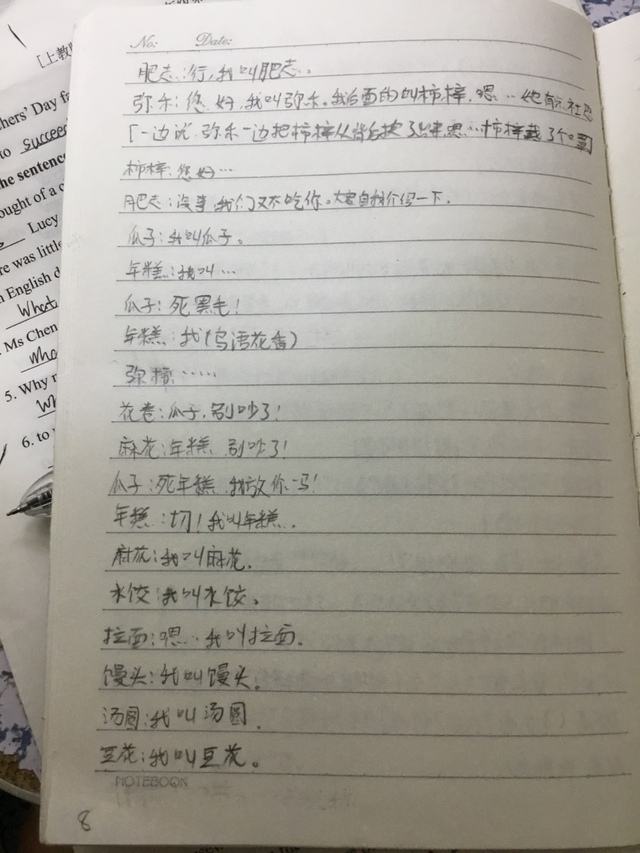 No: Date:
肥志:行,我叫肥志。
弥禾:您好,我叫弥禾。我后面的叫柿梓,嗯…她有点社恐
「一边说,弥禾一边把柿梓从背后拽了出来,嗯…柿梓戴了个口罩」
柿梓:您好…
肥志:没事,我们又不吃你。大家自我介绍一下。
瓜子:我叫瓜子。
年糕:我叫…
瓜子:死黑毛!
年糕:我(鸟语花香)
弥梓:……
花卷:瓜子,别吵了!
麻花:年糕,别吵了!
瓜子:死年糕,我放你一马!
年糕:切!我叫年糕.
麻花:我叫麻花.
水饺:我叫水饺。
拉面:嗯…我叫拉面.
馒头:我叫馒头。
汤圆:我叫汤圆.
豆花:我叫豆花。
NOTEBOOK
8
[上教版
hers' Day fa
to succeed
the sentence
ought of a c
Lucy
ere was little
n English d
What
Ms Chen
Who
5. Why
Wh
6. to